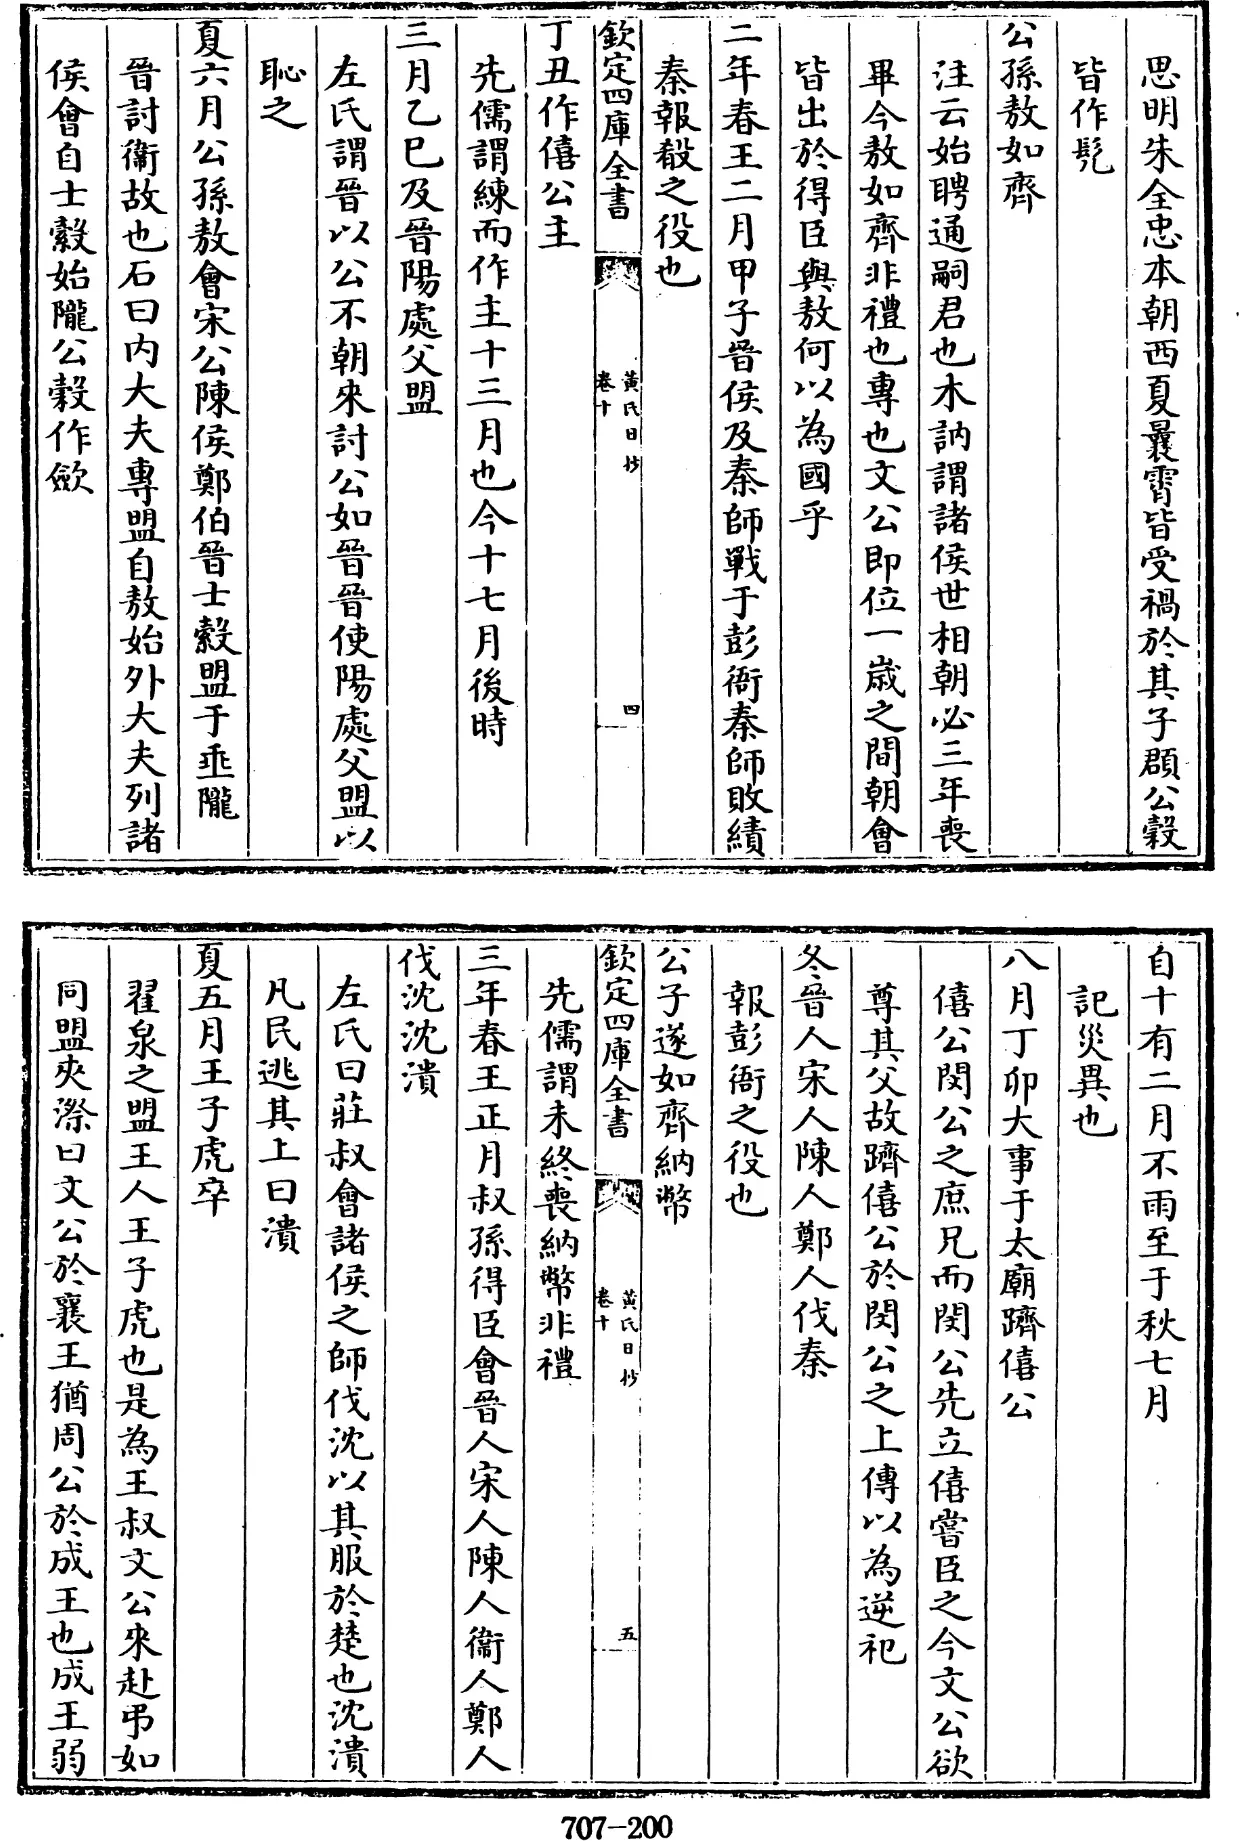 思明朱全忠本朝西夏曩霄皆受禍於其子頵公穀
皆作髠
公孫敖如齊
注云始聘通嗣君也木訥謂諸侯世相朝必三年喪
畢今敖如齊非禮也專也文公即位一歳之間朝會
皆出於得臣與敖何以為國乎
二年春王二月甲子晉侯及秦師戰于彭衙秦師敗績
秦報殽之役也
欽定四庫全書
黃氏日抄
卷十
四
丁丑作僖公主
先儒謂練而作主十三月也今十七月後時
三月乙巳及晉陽處父盟
左氏謂晉以公不朝來討公如晉晉使陽處父盟以
恥之
夏六月公孫敖會宋公陳侯鄭伯晉士縠盟于垂隴
晉討衞故也石曰内大夫專盟自敖始外大夫列諸
侯會自士縠始隴公穀作歛
自十有二月不雨至于秋七月
記災異也
八月丁卯大事于太廟躋僖公
僖公閔公之庶兄而閔公先立僖嘗臣之今文公欲
尊其父故躋僖公於閔公之上傳以為逆祀
冬晉人宋人陳人鄭人伐秦
報彭衙之役也
公子遂如齊納幣
欽定四庫全書
黃氏日抄
卷十
五
先儒謂未終喪納幣非禮
三年春王正月叔孫得臣會晉人宋人陳人衞人鄭人
伐沈沈潰
左氏曰莊叔會諸侯之師伐沈以其服於楚也沈潰
凡民逃其上曰潰
夏五月王子虎卒
翟泉之盟王人王子虎也是為王叔文公來赴弔如
同盟夾漈曰文公於襄王猶周公於成王也成王弱
707-200